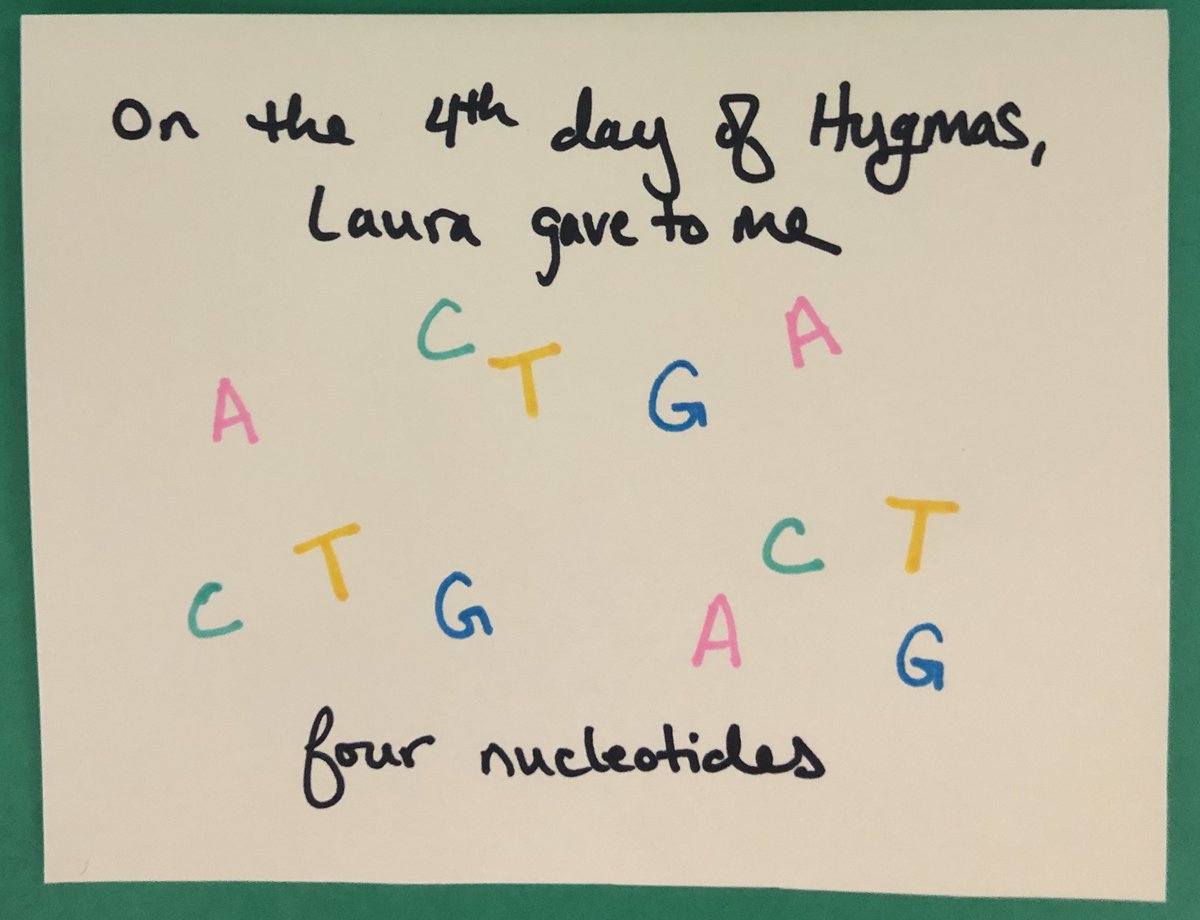 On the 4th day of Hygmas,
Laura gave to me
C A
A T G
T C T
C G A G
four nucleotides